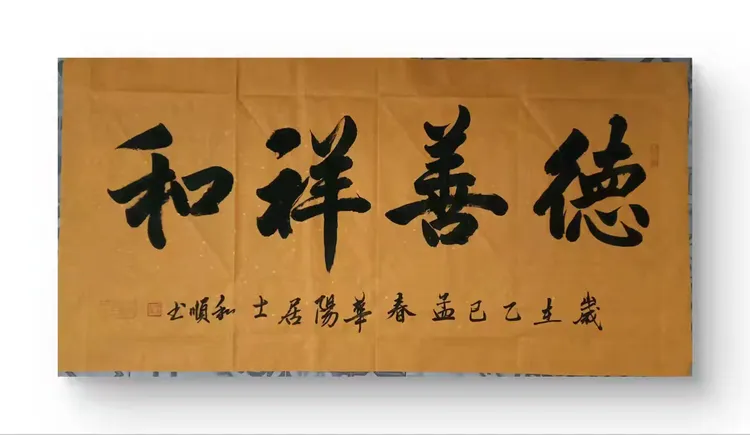 德善祥和
歲在乙巳孟春華陽居士和順书